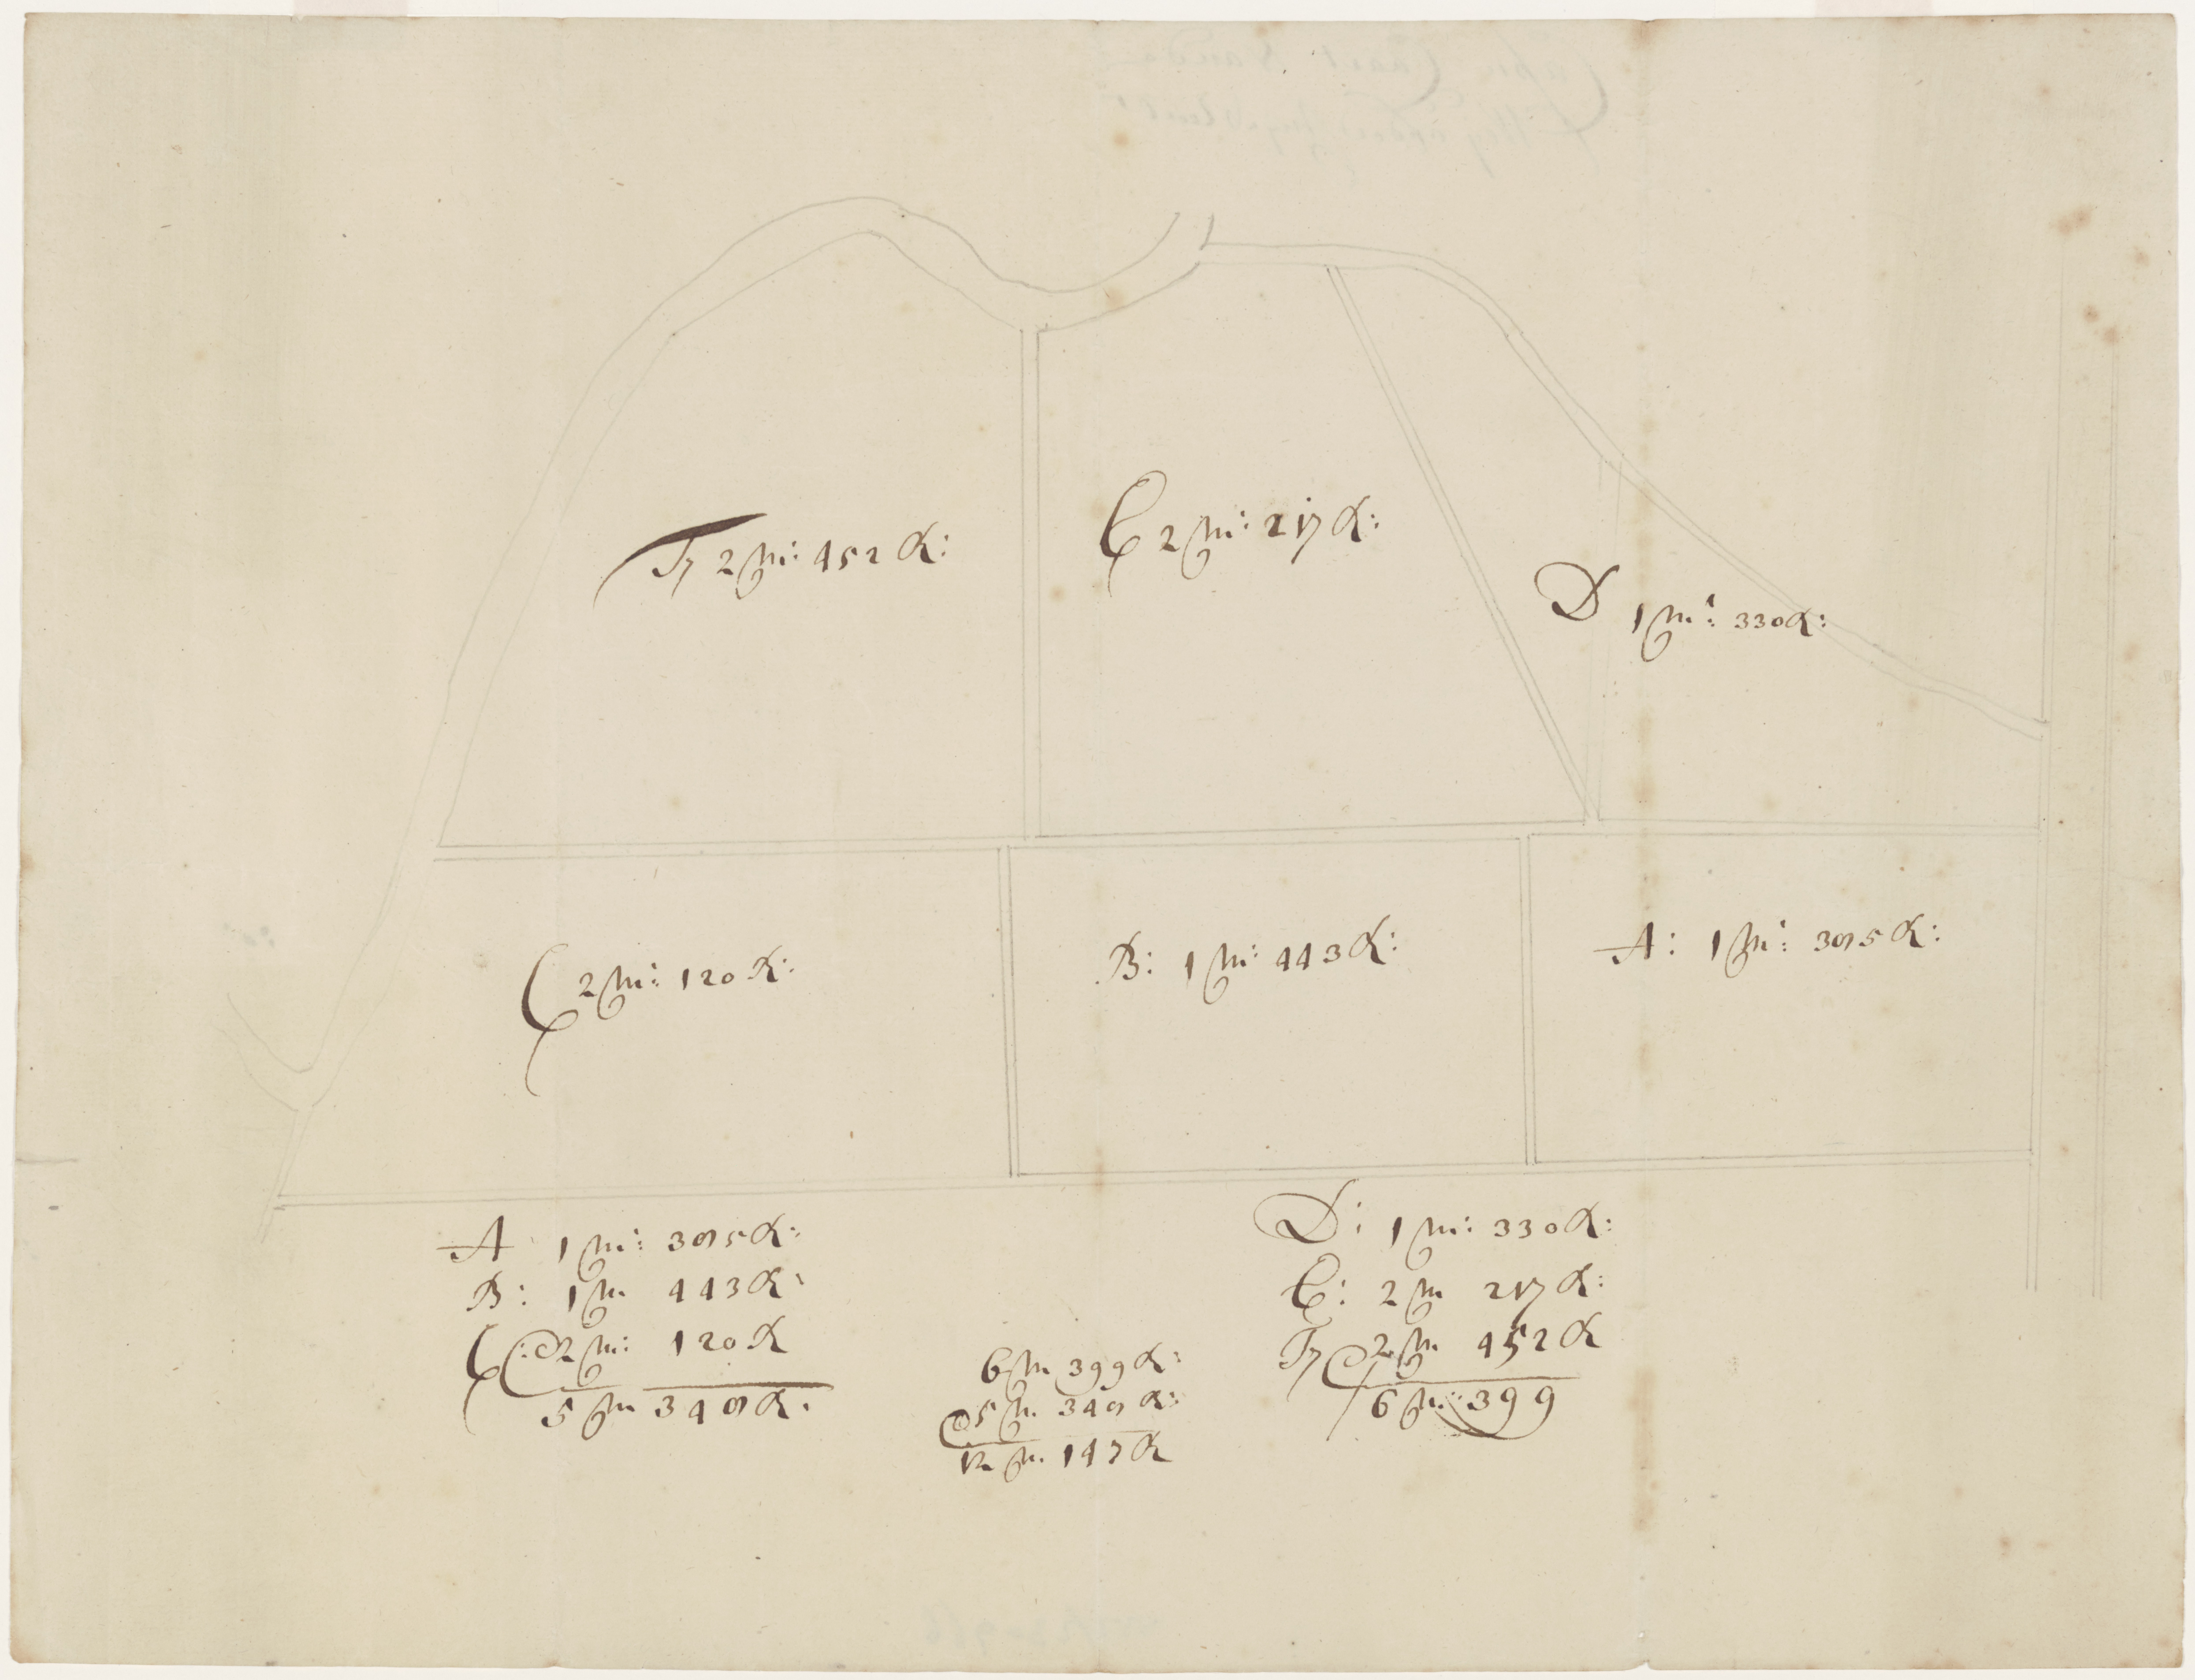 F 2 m: 452 R:
E 2 m: 217 R:
D 1 m: 330 R:
C 2 m: 120 R:
B: 1 m: 443 R:
A: 1 m: 385 R:
A 1 m: 385 R:
B: 1 m 443 R:
C: 2 m: 120 R
5 m 348 R:
6 m 399 R:
5 m 348 R:
12 m 147 R
D: 1 m: 330 R:
E: 2 m 217 R:
F 2 m 452 R
6 m: 399